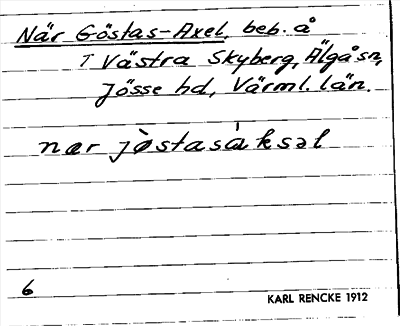 När Göstas-Axel, beb. å
↑ Västra Skyberg, Älgå sn,
Jösse hd, Värml. län.
nær jὸstasȧksəl
6
KARL RENCKE 1912